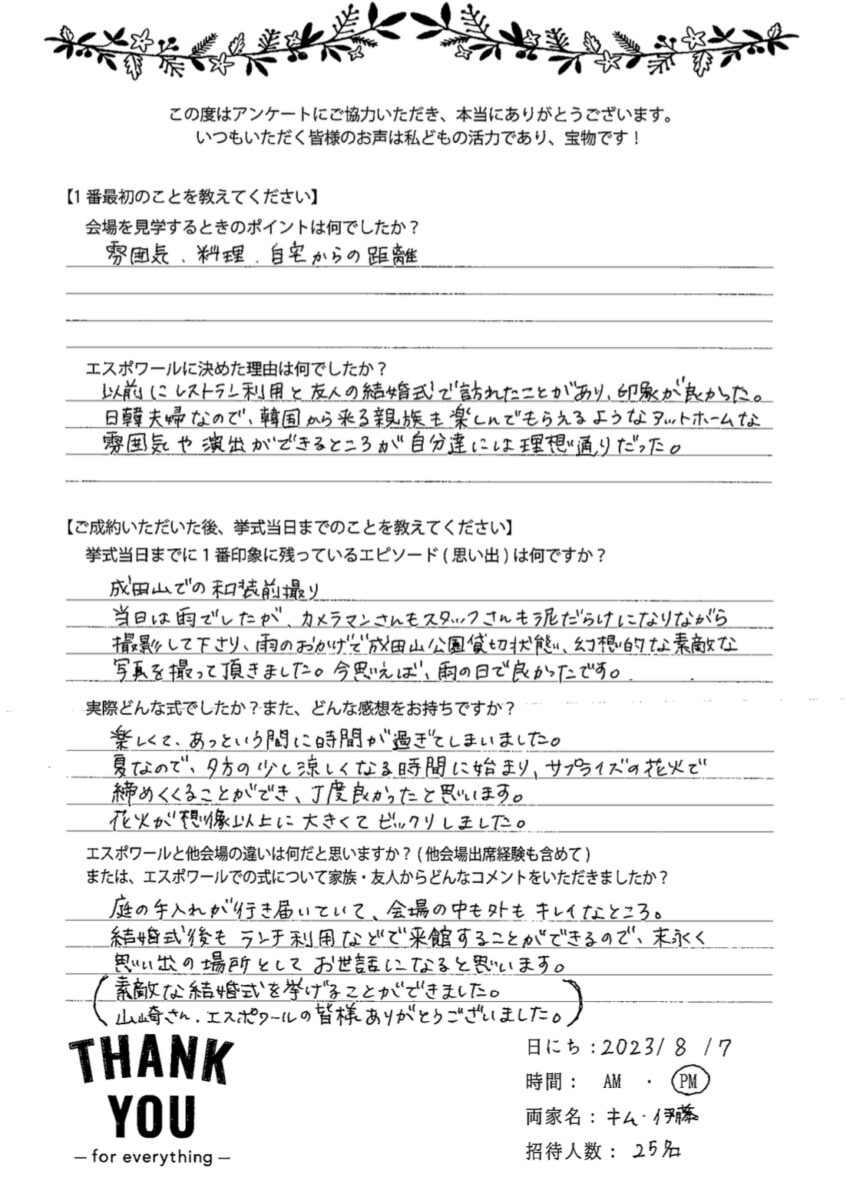 この度はアンケートにご協力いただき、本当にありがとうございます。
いつもいただく皆様のお声は私どもの活力であり、宝物です！
【1番最初のことを教えてください】
会場を見学するときのポイントは何でしたか？
雰囲気、料理、自宅からの距離
エスポワールに決めた理由は何でしたか？
以前にレストラン利用と友人の結婚式で訪れたことがあり、印象が良かった。
日韓夫婦なので、韓国から来る親族も楽しんでもらえるようなアットホームな
雰囲気や演出ができるところが自分達には理想通りだった。
【ご成約いただいた後、挙式当日までのことを教えてください】
挙式当日までに1番印象に残っているエピソード(思い出)は何ですか？
成田山での和装前撮り
当日は雨でしたが、カメラマンさんもスタッフさんも泥だらけになりながら
撮影して下さり、雨のおかげで成田山公園貸切状態、幻想的な素敵な
写真を撮って頂きました。今思えば、雨の日で良かったです。
実際どんな式でしたか？また、どんな感想をお持ちですか？
楽しくて、あっという間に時間が過ぎてしまいました。
夏なので、夕方の少し涼しくなる時間に始まり、サプライズの花火で
締めくくることができ、丁度良かったと思います。
花火が想像以上に大きくてビックリしました。
エスポワールと他会場の違いは何だと思いますか？(他会場出席経験も含めて)
または、エスポワールでの式について家族・友人からどんなコメントをいただきましたか？
庭の手入れが行き届いていて、会場の中も外もキレイなところ。
結婚式後もランチ利用などで来館することができるので、末永く
思い出の場所としてお世話になると思います。
(素敵な結婚式を挙げることができました。
山崎さん、エスポワールの皆様ありがとうございました。)
THANK
YOU
— for everything —
日にち：2023/8/7
時間： AM ・ PM
両家名：キム・伊藤
招待人数： 25名